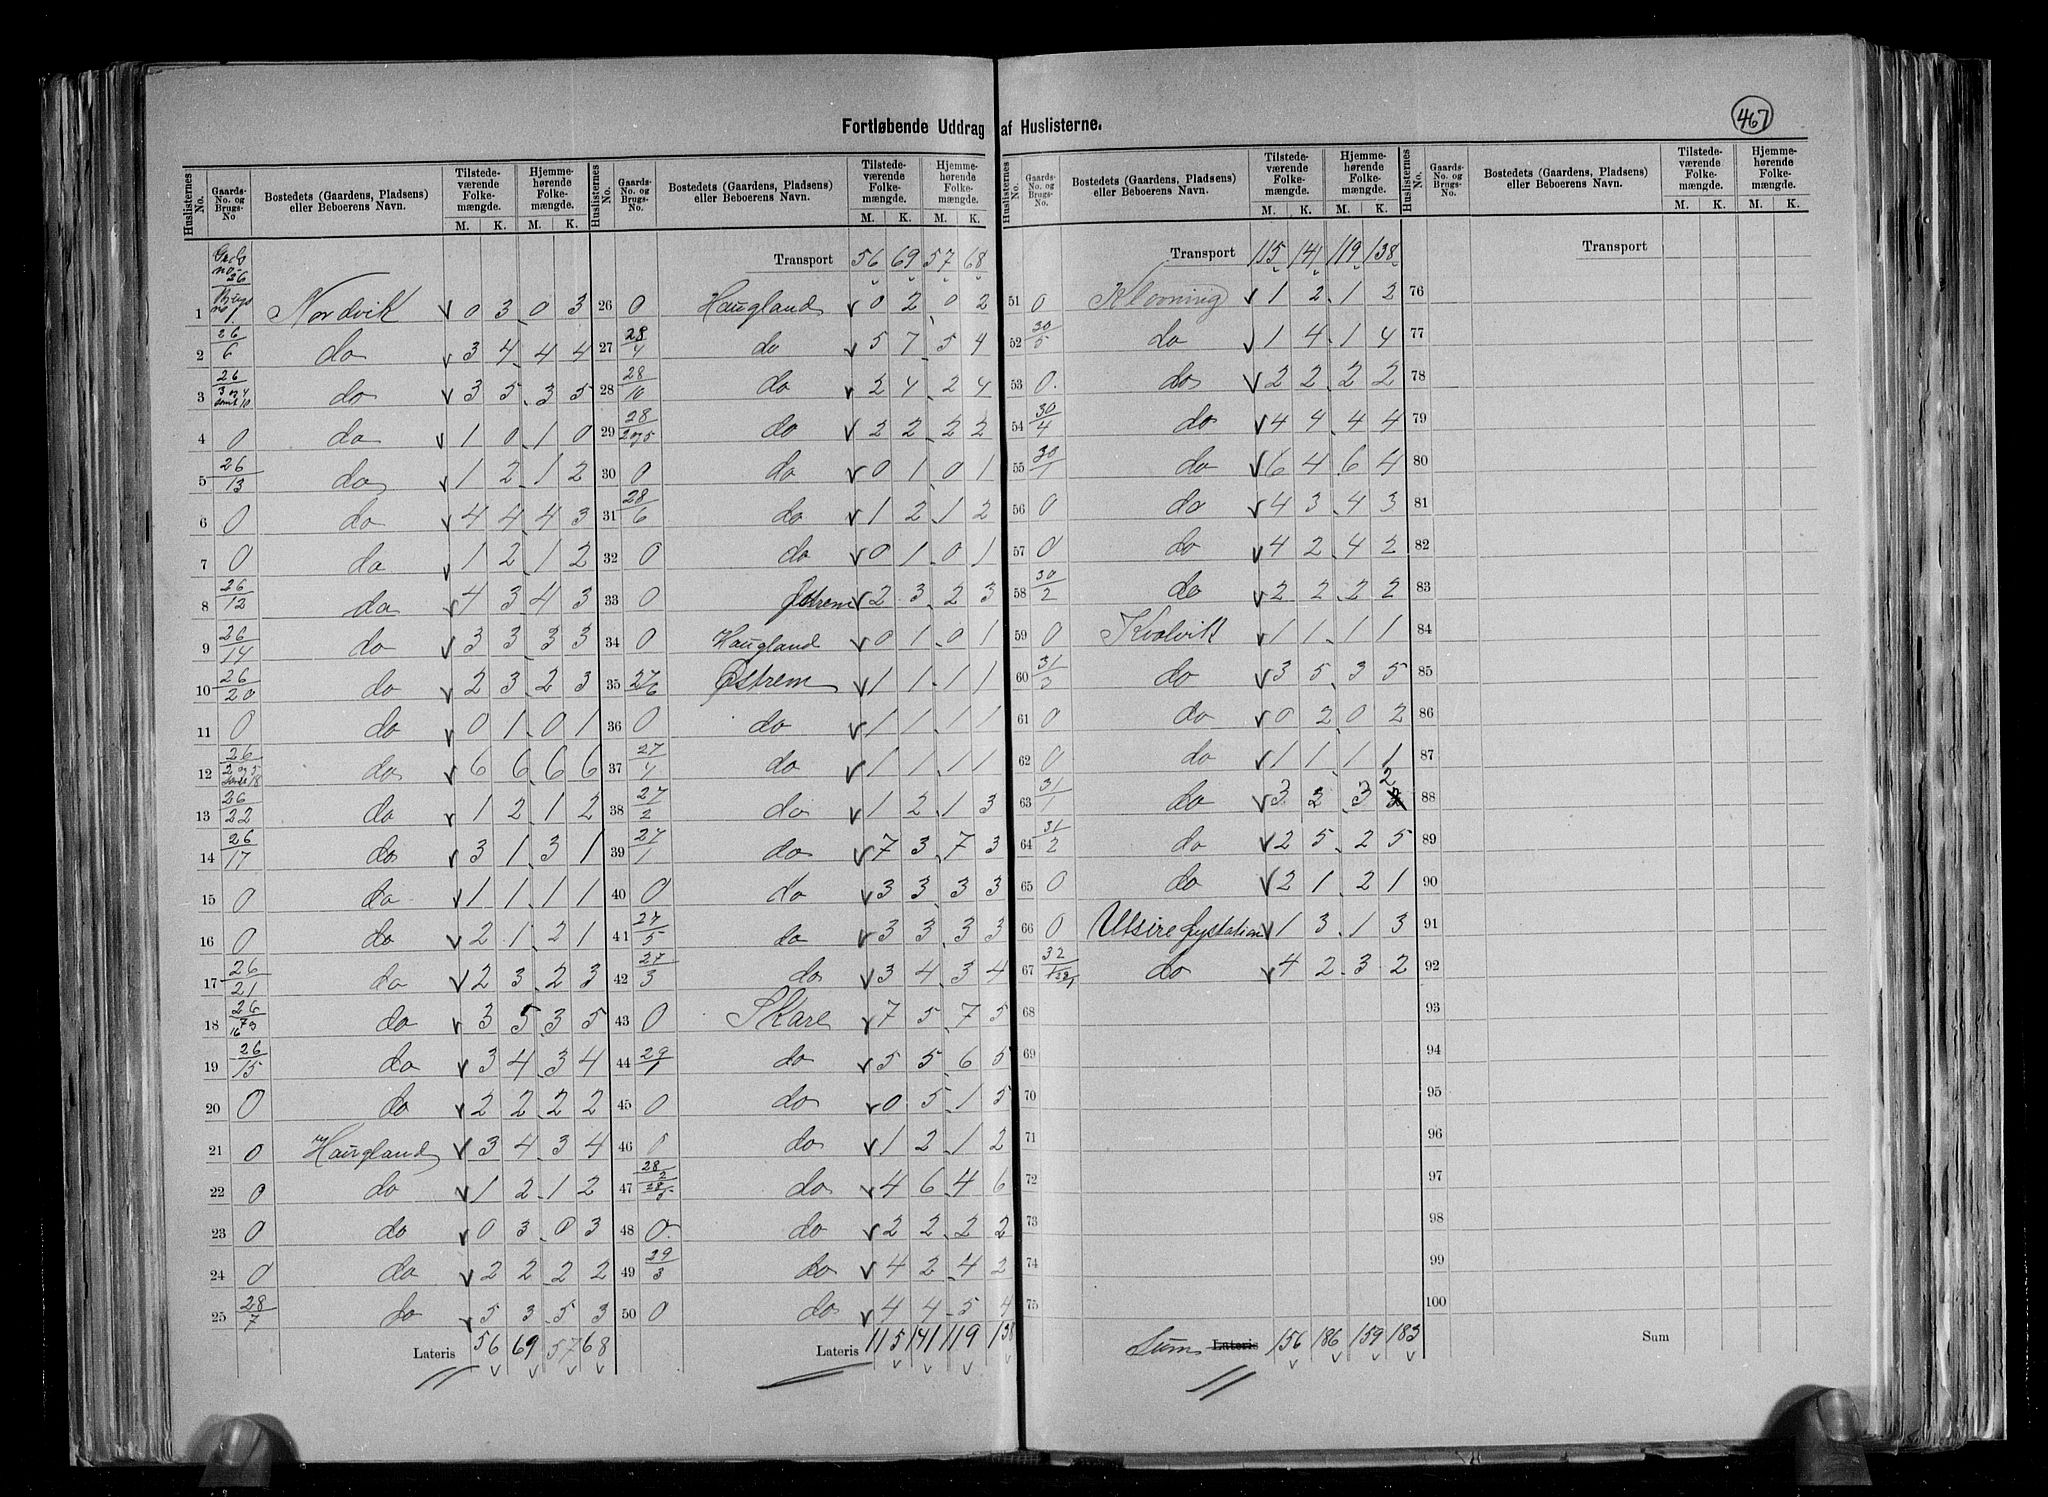 467
Fortløbende Uddrag af Huslisterne.
Huslisternes No. Gaards-No. og Brugs-No. Bostedets (Gaardens, Pladsens) eller Beboerens Navn. Tilstedeværende Folkemængde. M. K. Hjemmehørende Folkemængde. M. K.
Grds no 26 Brugs no
1 1. Nordvik v 0 3 0 3
2 26/6 do v 3 4 4 4
3 26/3 og 4 samt 10 do v 3 5 3 5
4 0 do v 1 0 1 0
5 26/13 do v 1 2 1 2
6 0 do v 4 4 4 3
7 0 do v 1 2 1 2
8 26/12 do v 4 3 4 3
9 26/14 do v 3 3 3 3
10 26/20 do v 2 3 2 3
11 0 do v 0 1 0 1
12 26/2 og 5 samt 18 do v 6 6 6 6
13 26/22 do v 1 2 1 2
14 26/17 do v 3 1 3 1
15 0 do v 1 1 1 1
16 0 do v 2 1 2 1
17 26/21 do v 2 3 2 3
18 26/ 16 do v 3 5 3 5
19 26/15 do v 3 4 3 4
20 0 do v 2 2 2 2
21 0 Haugland v 3 4 3 4
22 0 do v 1 2 1 2
23 0 do v 0 3 0 3
24 0 do v 2 2 2 2
25 28/7 do v 5 3 5 3
Lateris 56 69 57 68
Huslisternes No. Gaards-No. og Brugs-No. Bostedets (Gaardens, Pladsens) eller Beboerens Navn. Tilstedeværende Folkemængde. M. K. Hjemmehørende Folkemængde. M. K.
Transport 56 69 57 68
26 0 Haugland v 0 2 0 2
27 28/4 do v 5 7 5 4
28 28/10 do v 2 4 2 4
29 28/2 og 5 do v 2 2 2 2
30 0 do v 0 1 0 1
31 28/6 do v 1 2 1 2
32 0 do v 0 1 0 1
33 0 Østrem v 2 3 2 3
34 0 Haugland v 0 1 0 1
35 27/6 Østrem v 1 1 1 1
36 0 do v 1 1 1 1
37 27/4 do v 1 1 1 1
38 27/2 do v 1 2 1 3
39 27/1 do v 7 3 7 3
40 0 do v 3 3 3 3
41 27/5 do v 3 3 3 3
42 27/3 do v 3 4 3 4
43 0 Skare v 7 5 7 5
44 29/1 do v 5 5 6 5
45 0 do v 0 5 1 5
46 0 do v 1 2 1 2
47 28/2 do v 4 6 4 6
48 0 do v 2 2 2 2
49 29/3 do v 4 2 4 2
50 0 do v 4 4 5 4
Lateris 115 141 119 138
Huslisternes No. Gaards-No. og Brugs-No. Bostedets (Gaardens, Pladsens) eller Beboerens Navn. Tilstedeværende Folkemængde. M. K. Hjemmehørende Folkemængde. M. K.
Transport 115 141 119 138
51 0 Klovning v 1 2 1 2
52 30/5 do v 1 4 1 4
53 0. do v 2 2 2 2
54 30/4 do v 4 4 4 4
55 30/1 do v 6 4 6 4
56 0 do v 4 3 4 3
57 0 do v 4 2 4 2
58 30/2 do v 2 2 2 2
59 0 Kvalvik v 1 1 1 1
60 31/3 do v 3 5 3 5
61 0 do v 0 2 0 2
62 0 do v 1 1 1 1
63 31/1 do v 3 2 3 2
64 31/2 do v 2 5 2 5
65 0 do v 2 1 2 1
66 0 Utsire fyrstation v 1 3 1 3
67 32/ do v 4 2 3 2
68
69
70
71
72
73
74
75
Sum Lateris 156 186 159 183
Huslisternes No. Gaards-No. og Brugs-No. Bostedets (Gaardens, Pladsens) eller Beboerens Navn. Tilstedeværende Folkemængde. M. K. Hjemmehørende Folkemængde. M. K.
Transport
76
77
78
79
80
81
82
83
84
85
86
87
88
89
90
91
92
93
94
95
96
97
98
99
100
Sum